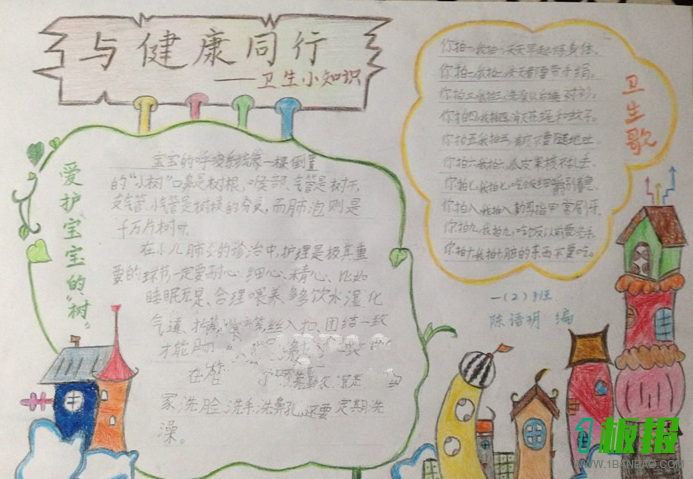 与健康同行
——卫生小知识
爱护宝宝的“树”
宝宝的呼吸系统像一棵倒置
的“小树”口鼻是树根、喉部、气管是树干,
支气管、小气管是树枝的分叉,而肺泡则是
千万片树叶。
在小儿肺炎的诊治中,护理是极其重
要的环节一定要耐心、细心、精心,比如
睡眠充足、合理喂养、多饮水湿化
气道、拍背,等丝丝入扣,团结一致
才能
家洗脸、洗手、洗鼻孔,还要定期洗
澡。
卫生歌
你拍一我拍一,天天早起练身体。
你拍二我拍二,天天都要带手绢。
你拍三我拍三,洗澡以后换衬衫。
你拍四我拍四,消灭苍蝇和蚊子。
你拍五我拍五,有痰不要随地吐。
你拍六我拍六,瓜皮果核不乱丢。
你拍七我拍七,吃饭细嚼别着急。
你拍八我拍八,勤剪指甲常刷牙。
你拍九我拍九,吃饭以前要洗手。
你拍十我拍十,脏的东西不要吃。
一(2)班
陈语玥 编
1板报
WWW.1BANBAO.COM